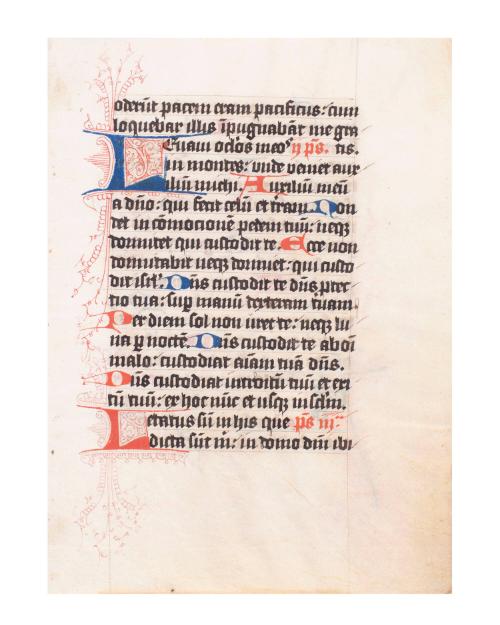 oderūt pacem eram pacificus: cum
loquebar illis īpugnabāt me gra
Leuaui oclos meoˢ ij p̄s. tis.
in montes: vnde veniet aux
iliū michi. Auxiliū meū
a dn̄o: qui fecit celū et terrā. Non
det in cōmocionē pedem tuū: neqꝫ
dormitet qui custodit te. Ecce non
dormitabit neqꝫ dormiet: qui custo
dit isrl̄. Dn̄s custodit te dn̄s ꝓtec
tio tua: suꝑ manū dexteram tuam.
Per diem sol non vret te: neqꝫ lu
na ꝑ noctē. Dn̄s custodit te ab om̄i
malo: custodiat aīam tuā dn̄s.
Dn̄s custodiat introitū tuū et exi
tū tuū: ex hoc nūc et usqꝫ in sc̄lm.
Letatus sū in his que p̄s iij
dicta sūt m̄: in domo dn̄i ibi